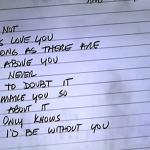 NOT
LOVE YOU
AS THERE ARE
ABOVE YOU
NEVER
TO DOUBT IT
MAKE YOU SO
ABOUT IT
ONLY KNOWS
I'D BE WITHOUT YOU